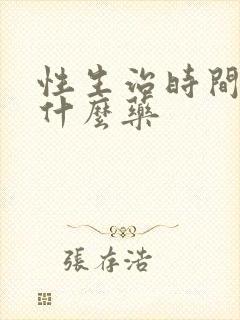 性生治時間
什麼藥
張存浩